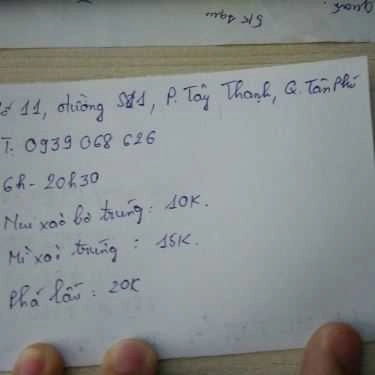 quank
5K
11, đường S11, P. Tây Thạnh, Q. Tân Phú
T: 0939 068 626
6h - 20h30
Nui xào bò trứng: 10K.
Mì xào trứng: 15K.
Phá lấu: 20K